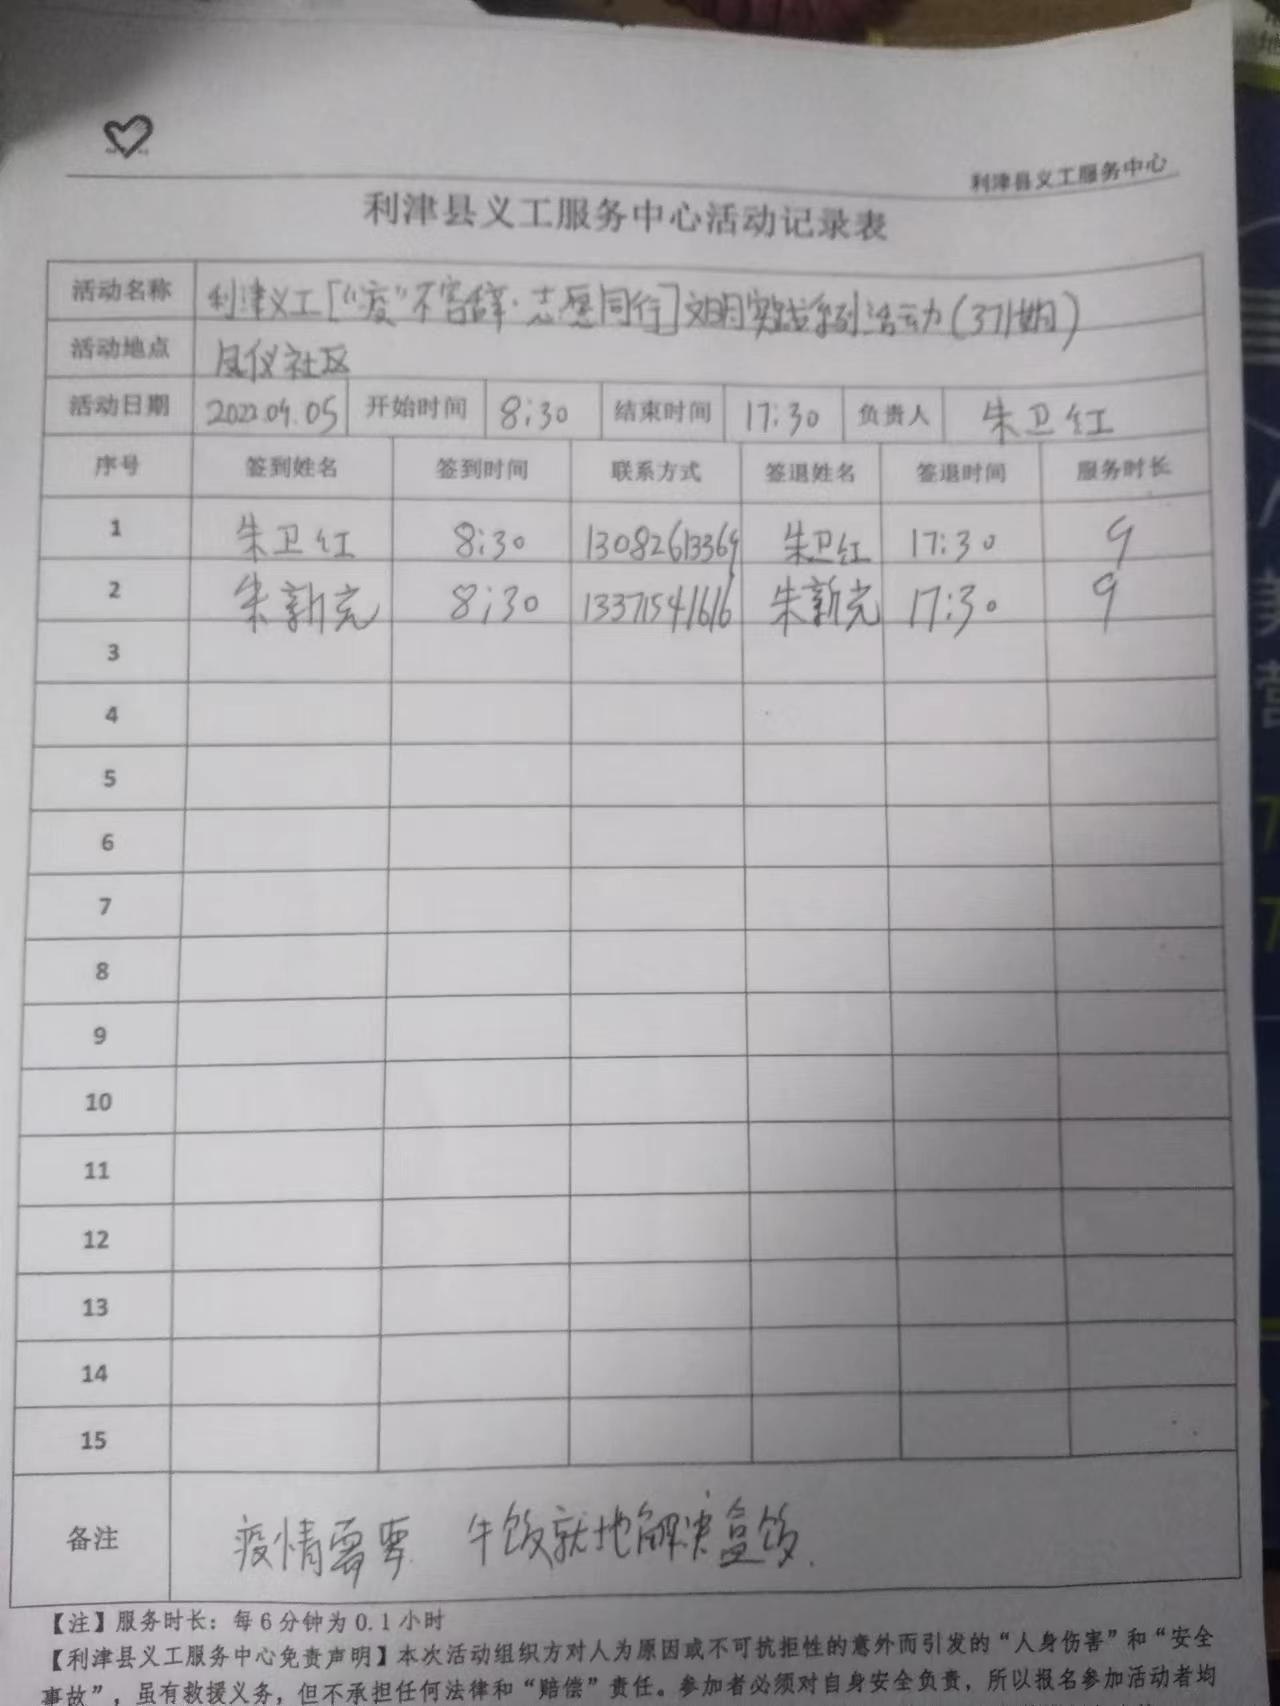 利津县义工服务中心
利津县义工服务中心活动记录表
活动名称 利津义工["疫"不容辞·志愿同行]文明实践系列活动(371期)
活动地点 凤仪社区
活动日期 2022.04.05 开始时间 8:30 结束时间 17:30 负责人 朱卫红
序号 签到姓名 签到时间 联系方式 签退姓名 签退时间 服务时长
1 朱卫红 8:30 13082613369 朱卫红 17:30 9
2 朱新光 8:30 13371541616 朱新光 17:30 9
3
4
5
6
7
8
9
10
11
12
13
14
15
备注 疫情需要 午饭就地解决盒饭.
【注】服务时长：每6分钟为0.1小时
【利津县义工服务中心免责声明】本次活动组织方对人为原因或不可抗拒性的意外而引发的“人身伤害”和“安全
事故”，虽有救援义务，但不承担任何法律和“赔偿”责任。参加者必须对自身安全负责，所以报名参加活动者均